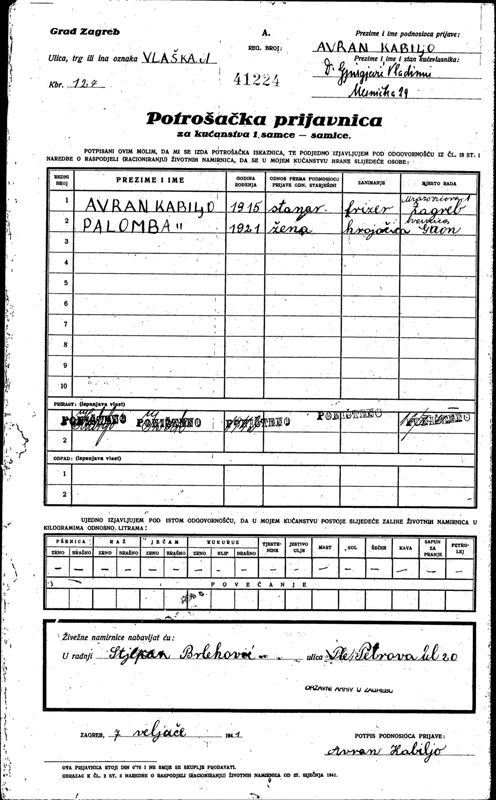 Grad Zagreb
Ulica, trg ili ina oznaka VLAŠKA ul
Kbr. 124
A.
REG. BROJ:
41224
Prezime i ime podnosioca prijave:
AVRAN KABILJO
Prezime i ime i stan kućevlasnika:
Dr Vladimir
29
Potrošačka prijavnica
za kućanstva i samce — samice.
POTPISANI OVIM MOLIM, DA MI SE IZDA POTROŠAČKA ISKAZNICA, TE PODJEDNO IZJAVLJUJEM POD ODGOVORNOŠĆU IZ ČL. 18 ST. 1
NAREDBE O RASPODJELI (RACIONIRANJU) ŽIVOTNIH NAMIRNICA, DA SE U MOJEM KUĆANSTVU HRANE SLIJEDEĆE OSOBE:
REDNI BROJ PREZIME I IME GODINA ROĐENJA ODNOS PREMA PODNOSIOCU PRIJAVE ODN. STARJEŠINI ZANIMANJE MJESTO RADA
1 AVRAN KABILJO 1915 stanar. frizer Zagreb
2 PALOMBA " 1921 žena krojačica Gaon
3
4
5
6
7
8
9
10
PRIRAST: (ispunjava vlast)
PONIŠTENO PONIŠTENO PONIŠTENO PONIŠTENO PONIŠTENO
2
OTPAD: (ispunjava vlast)
1
2
UJEDNO IZJAVLJUJEM POD ISTOM ODGOVORNOŠĆU, DA U MOJEM KUĆANSTVU POSTOJE SLIJEDEĆE ZALIHE ŽIVOTNIH NAMIRNICA U
KILOGRAMIMA ODNOSNO LITRAMA:
PŠENICA RAŽ JEČAM KUKURUZ TJESTENINE JESTIVO ULJE MAST SOL ŠEĆER KAVA SAPUN ZA PRANJE PETROLEJ
ZRNO BRAŠNO ZRNO BRAŠNO ZRNO BRAŠNO ZRNO KLIP BRAŠNO
— — — — — — — — — — — — — — — — —
POVEĆANJE
Živežne namirnice nabavljat ću:
U radnji Stjepan Brleković - ulica Petrova ul 20
DRŽAVNI ARHIV U ZAGREBU
ZAGREB, 7 veljače 1941
POTPIS PODNOSIOCA PRIJAVE:
Avran Kabiljo
OVA PRIJAVNICA STOJI DIN 0'75 I NE SMIJE SE SKUPLJE PRODAVATI.
OBRAZAC K ČL. 2 ST. 3 NAREDBE O RASPODJELI (RACIONIRANJU) ŽIVOTNIH NAMIRNICA OD 27. SIJEČNJA 1941.